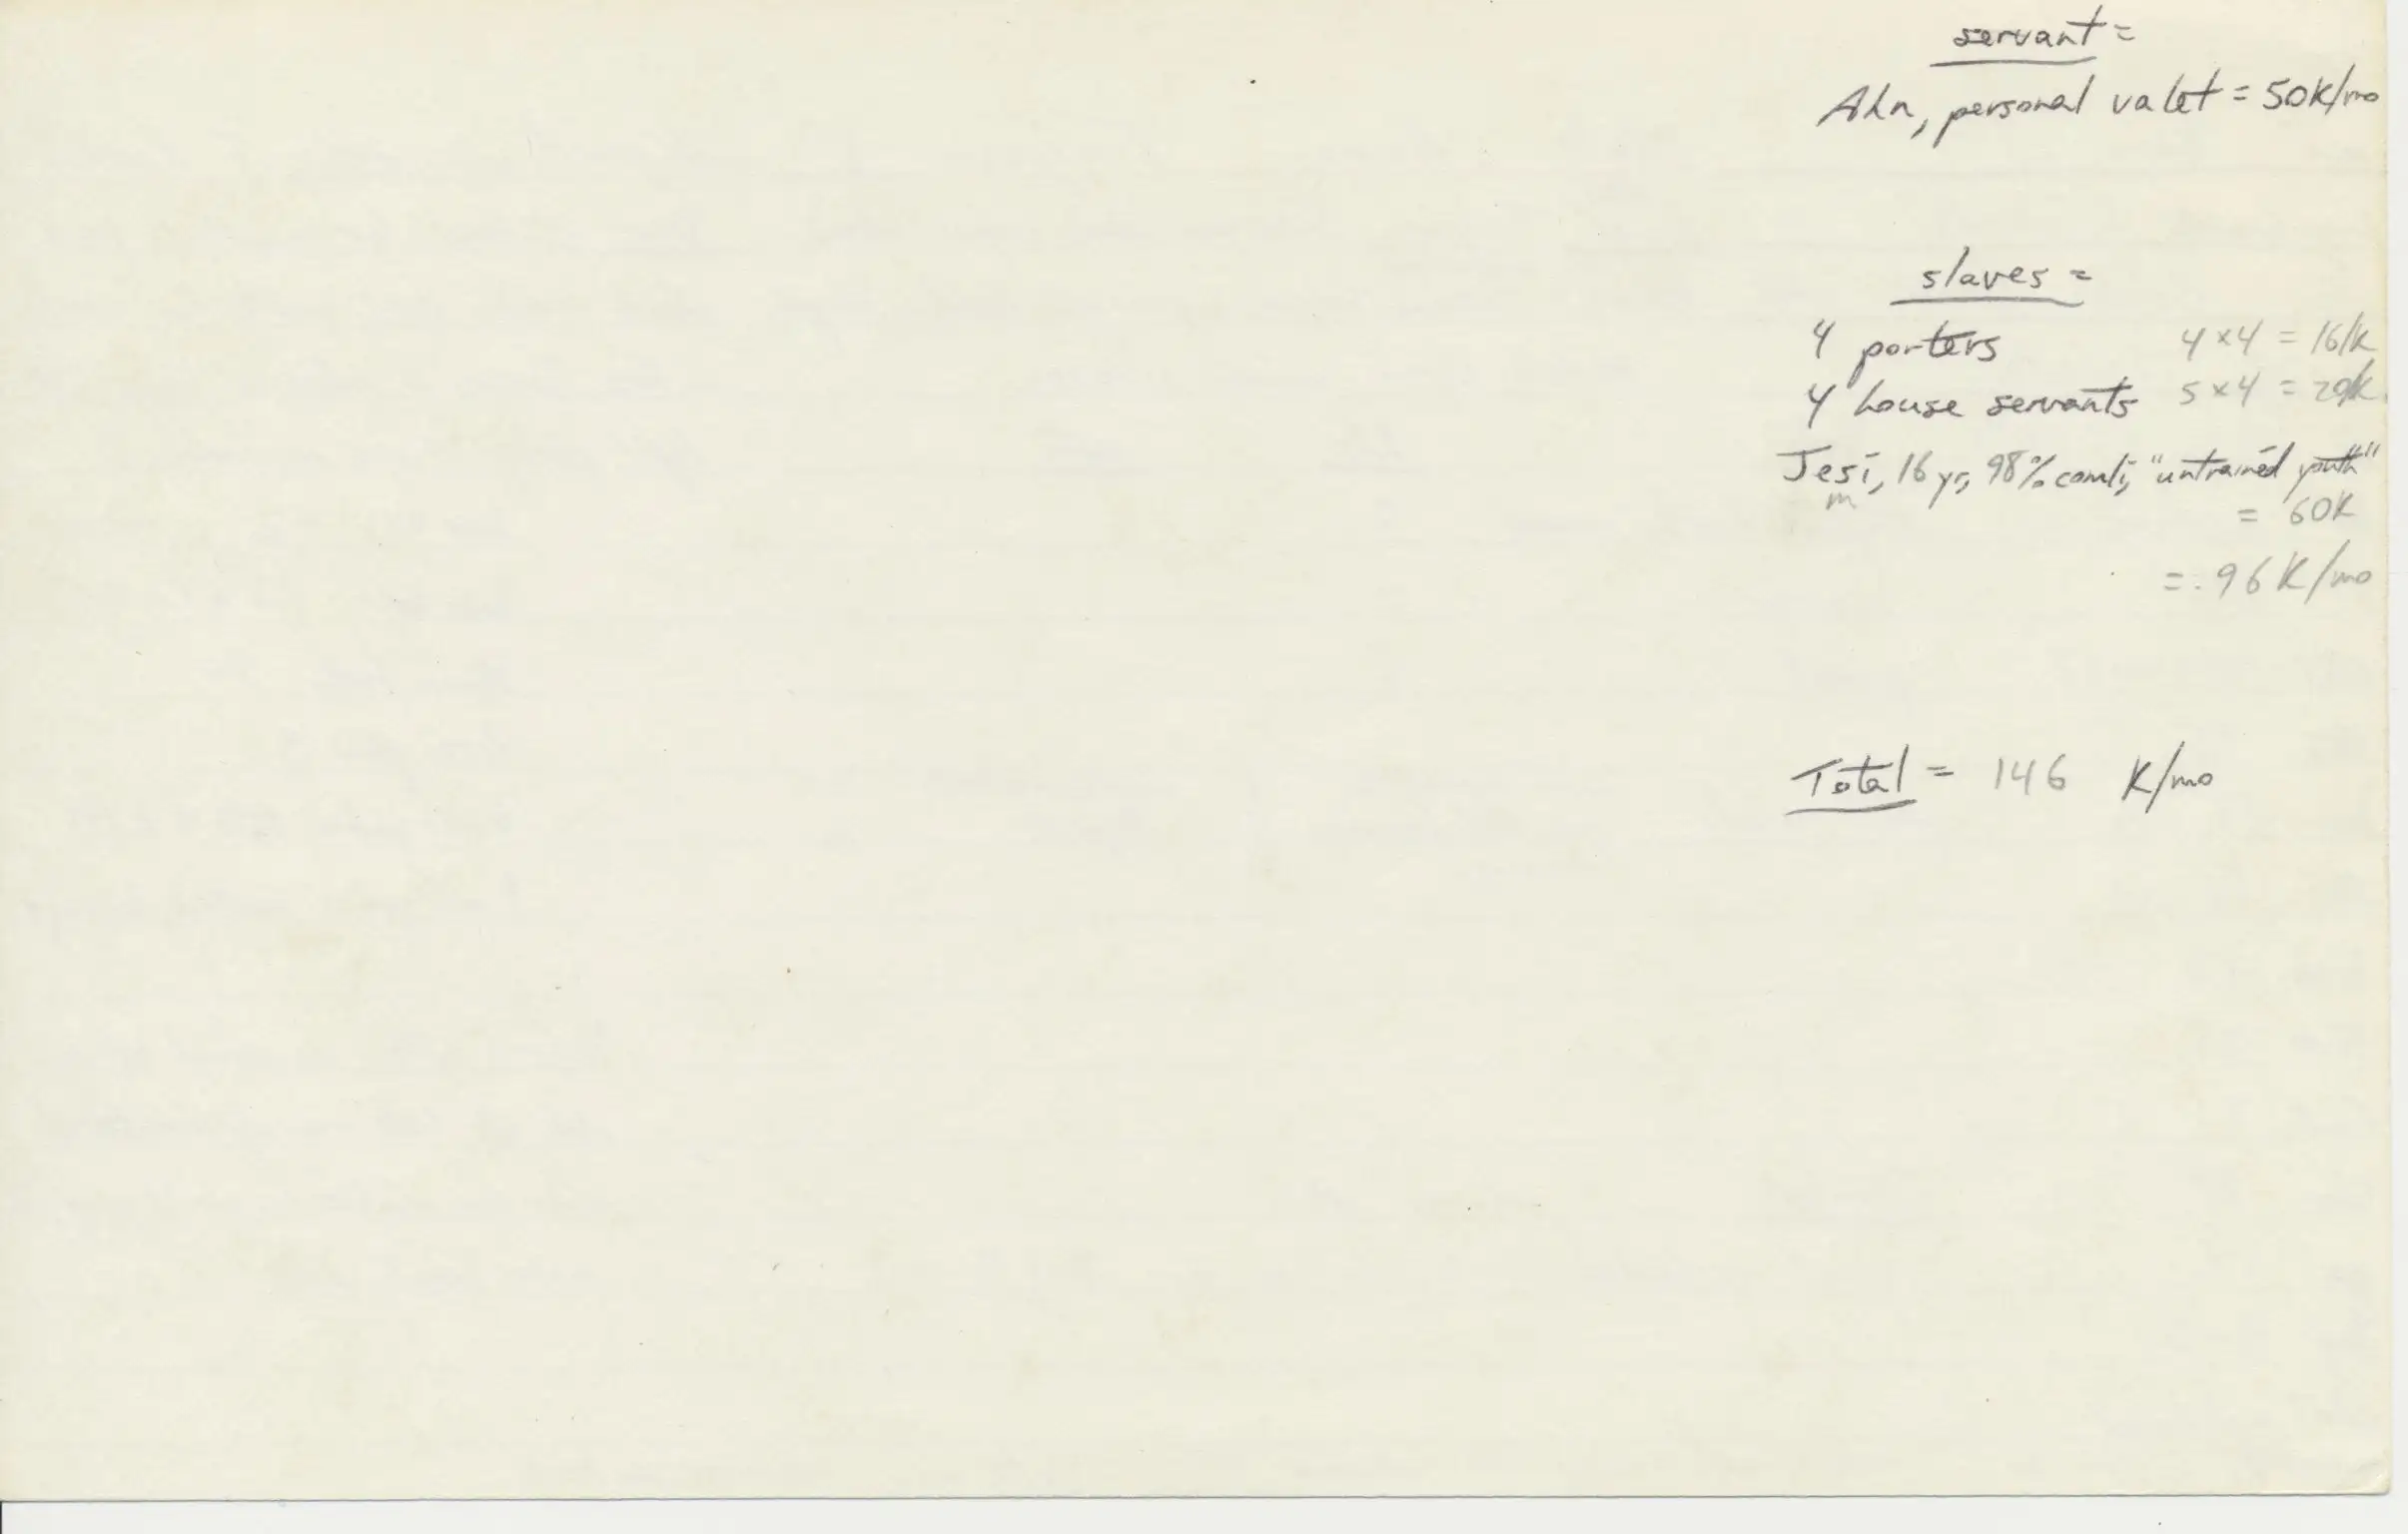 servant =
Ahn, personal valet = 50K/mo
slaves =
4 porters 4 x 4 = 16/K
4 house servants 5 x 4 = 20/K
Jesi, 16 yr, 98% comli, "untrained youth"
m
= 60K
= 96K/mo
Total = 146 K/mo